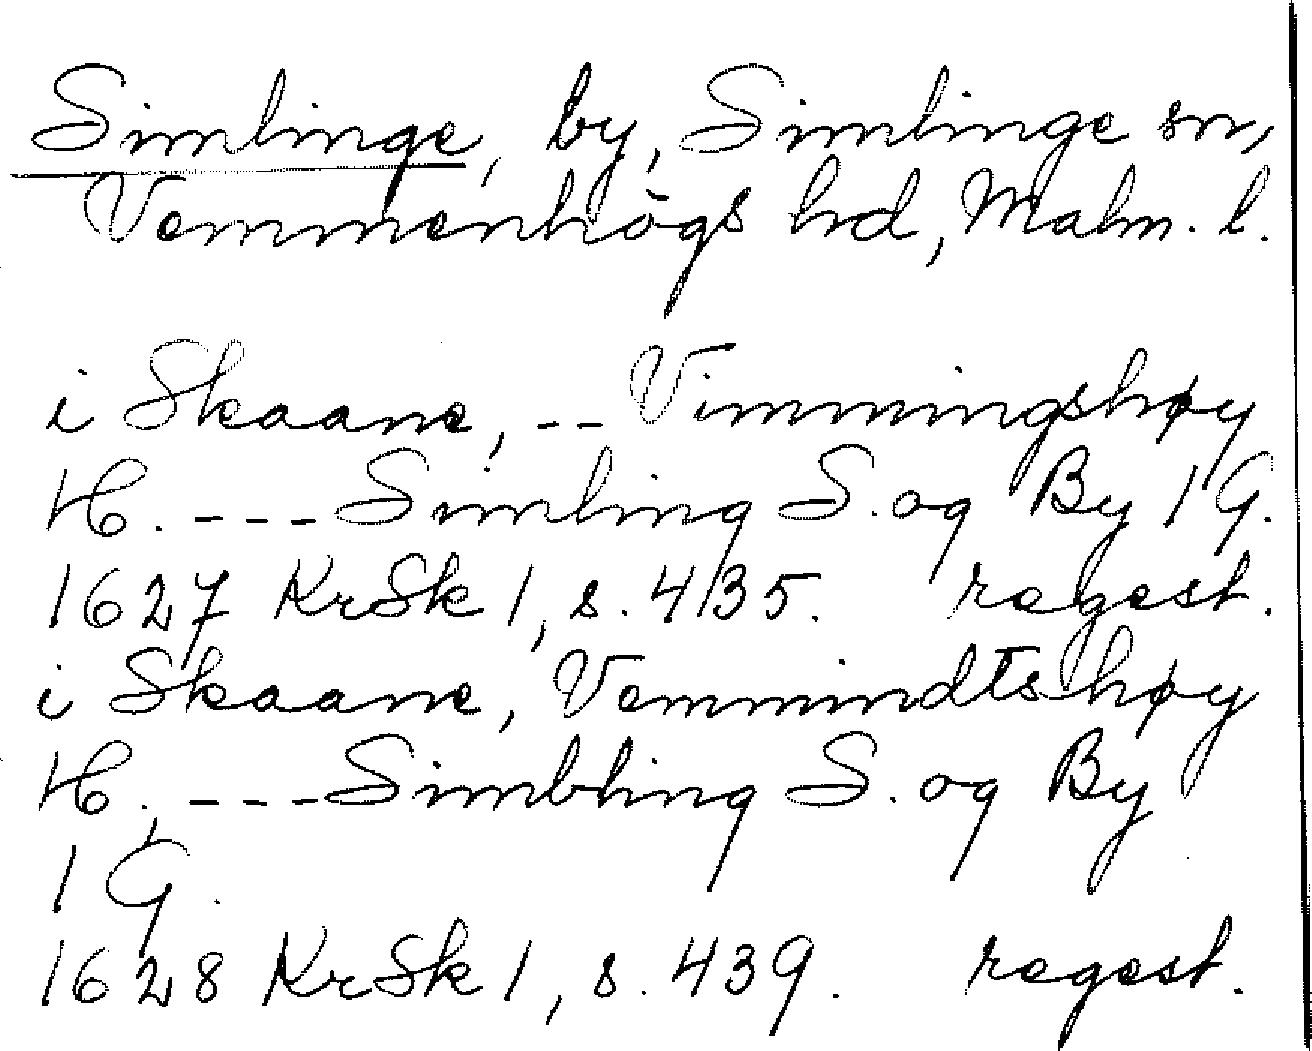 Simlinge, by, Simlinge sn,
Vemmenhögs hd, Malm. l.
i Skaane, -- Vimmingshøy
H. --- Simling S. og By 1 G.
1627 KrSk 1, s. 435. regest.
i Skaane, Vemmindtshøy
H., --- Simbling S. og By
1 G.
1628 KrSk 1, s. 439. regest.